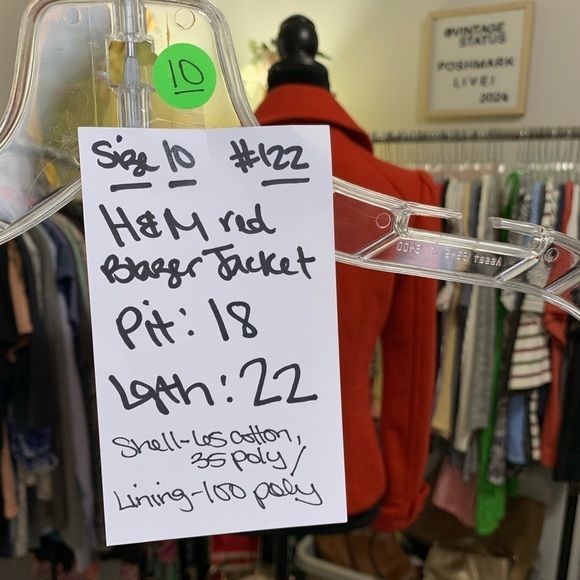 @VINTAGE
STATUS
POSHMARK
LIVE!
2024
10
Size 10 #122
H&M red
Blazer Jacket
Pit: 18
Lgth: 22
Shell-65 cotton,
35 poly/
Lining-100 poly